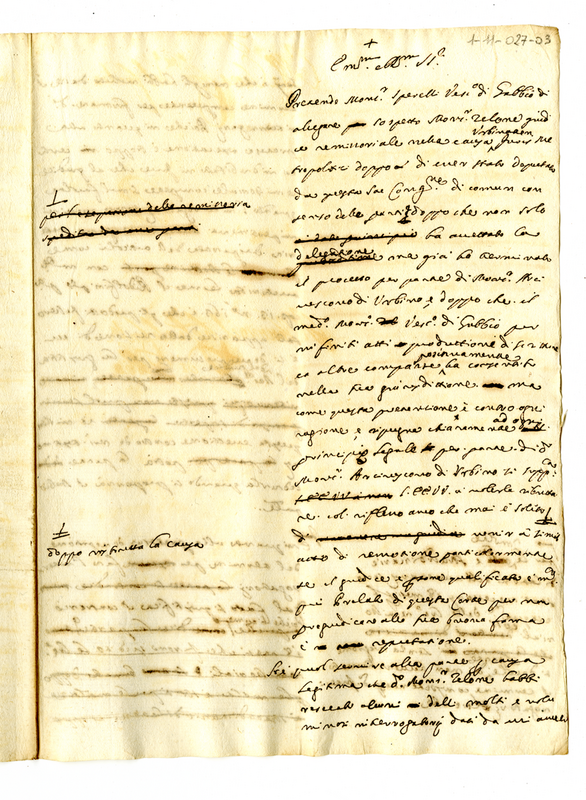 1-11-027-03
+
Em.mi e R.mi SS.ri
Pretendo Mons.r Sperelli Vesc.o di Gubbio di
alegare sospetto Mons.r Zelone giud
ce remissoriale nella causa Urbinaten. Iuris Me
tropolitici doppo di esser stato deputato
da questa Sac. Cong.ne di comun con
senso delle parti, e doppo che non solo
ha accettato la
delegatione ma già ho terminato
il processo per parte di Mons.r Arci
vescovo di Urbino, e doppo che il
med.o Mons.r Vesc.o di Gubbio per
infiniti atti produttione di scritture
et altre comparse ha positivamente consentito
nella sua giurisdittione ma
come questa pretentione è contro ogni
ragione, e ripugna chiaramente ad ogni
principio legale per parte di d.o
Mons.r Arcivescovo di Urbino si supp.ca
l'EE.VV. a volerla ributta
re col riflesso che mai è solito
di venir a simil
atto di remotione particolarmente
se il giudice è persona qualificata e in
qui Prelato di questa Corte per non
pregiudicare alla sua buona forma
e reputatione.
Ne può servire alla parte p. causa
legitima che d.o Mons.r Zelone habbi
rescecati alcuni delli molti e
minori interrogatorij dati da
1
per l'espeditione della remissoria
spedita da una parte
1
doppo instrutta la causa